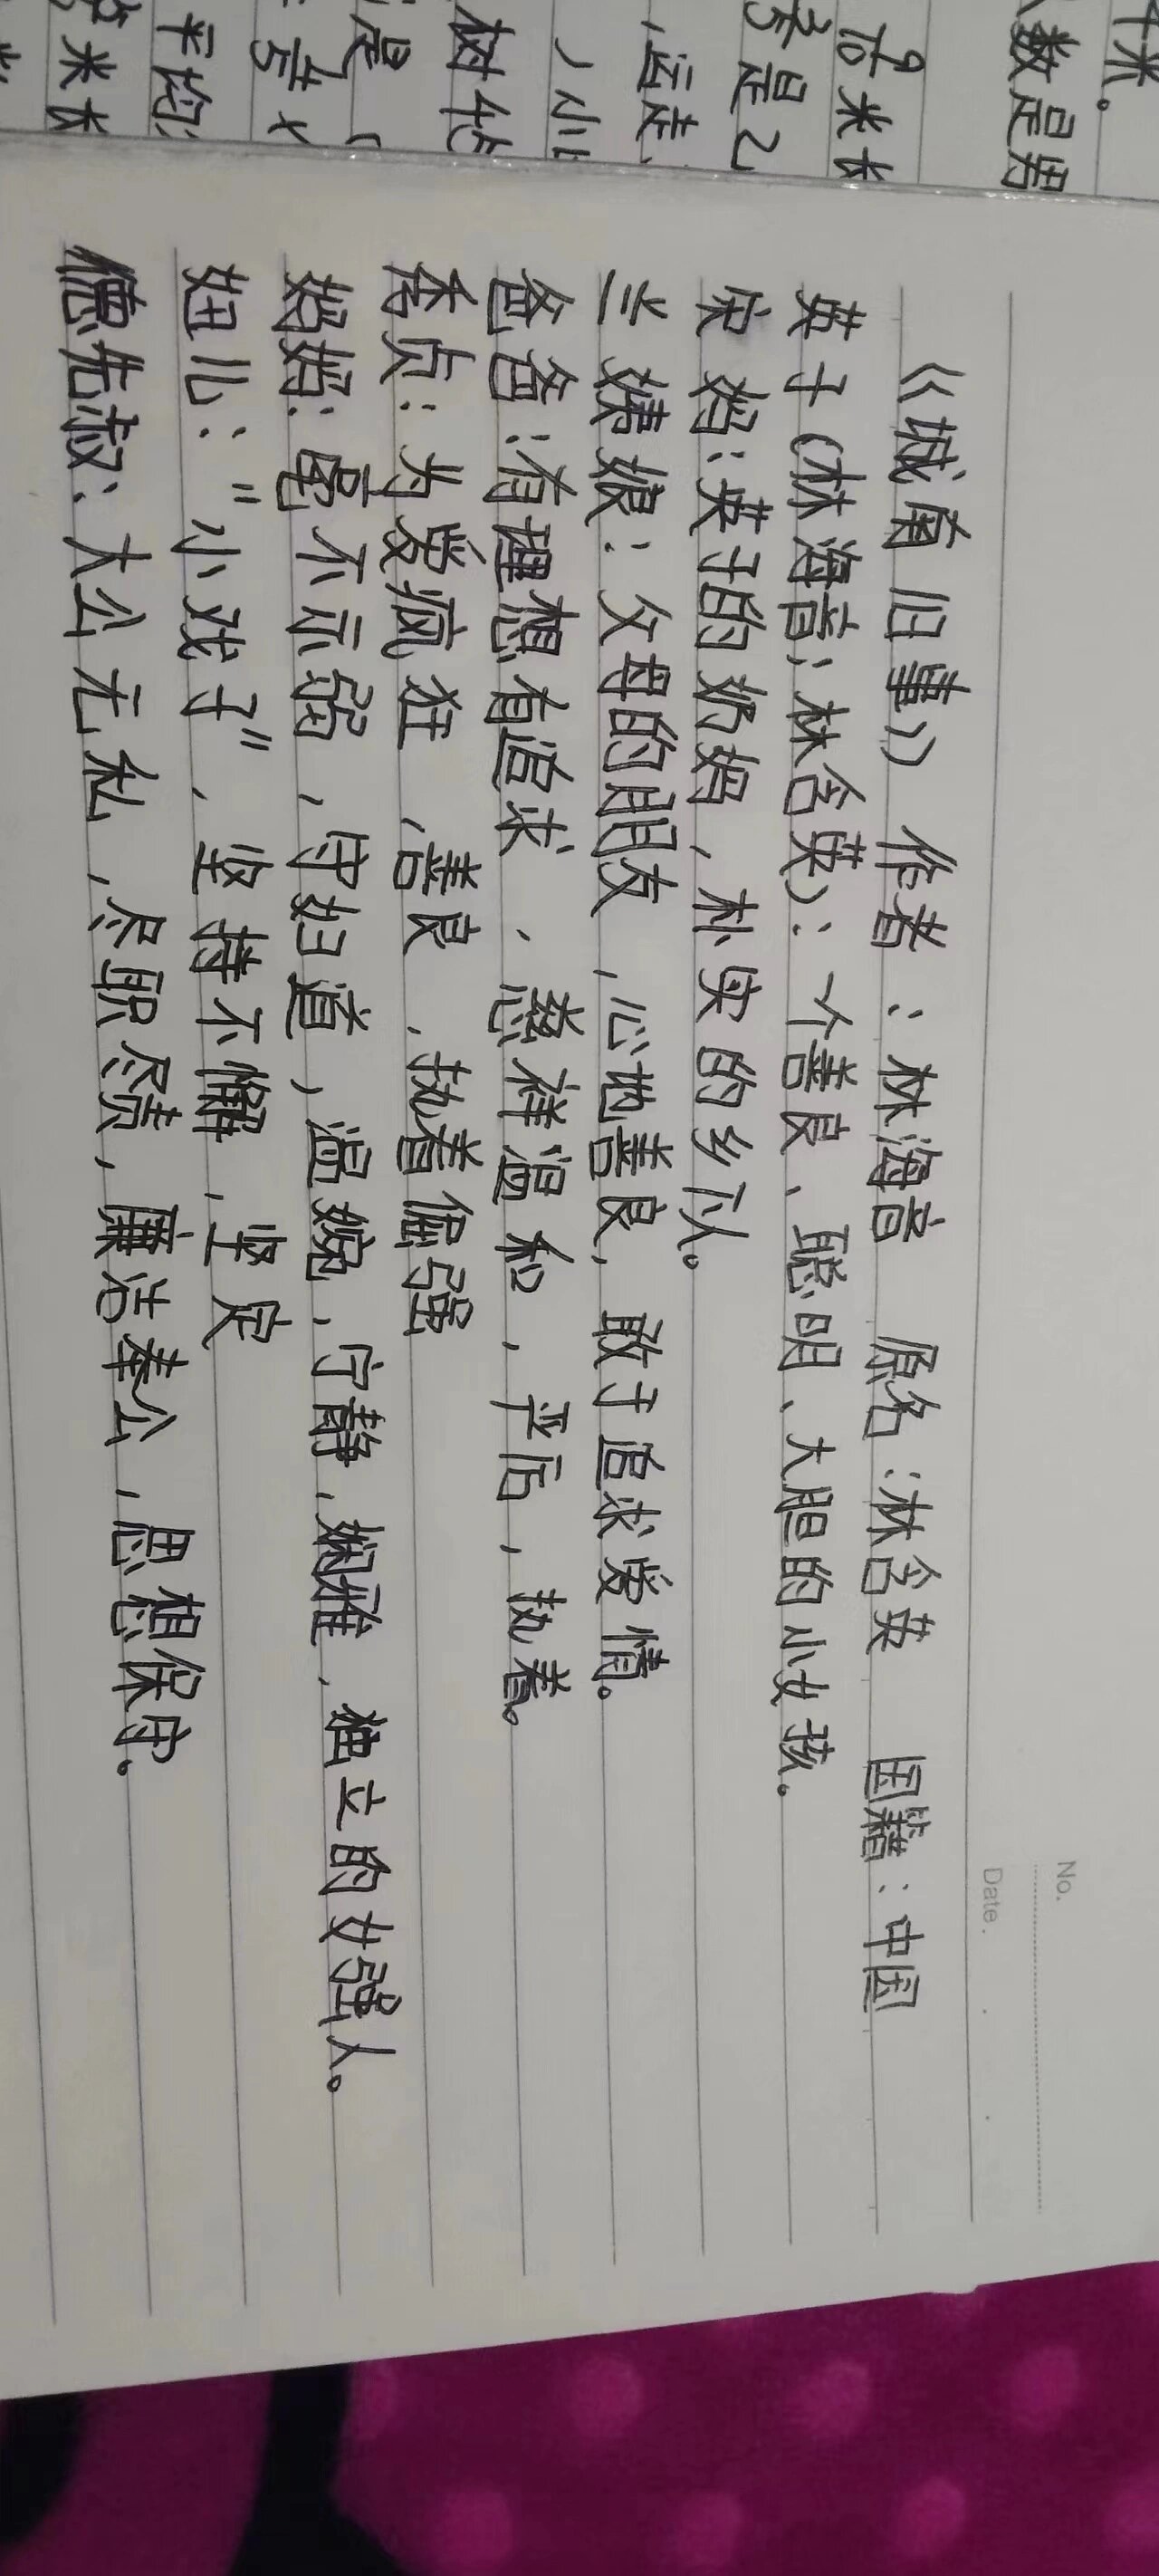 No.
Date.
《城南旧事》 作者：林海音 原名：林含英 国籍：中国
英子（林海音；林含英）：一个善良、聪明、大胆的小女孩。
宋妈：英子的奶妈，朴实的乡下人。
兰姨娘：父母的朋友，心地善良，敢于追求爱情。
爸爸：有理想有追求、慈祥温和，严厉，执着。
秀贞：为爱疯狂、善良、执着倔强
妈妈：毫不示弱，守妇道，温婉、宁静、娴雅、独立的女强人。
妞儿："小戏子"、坚持不懈，坚定
德先叔：大公无私，尽职尽责，廉洁奉公，思想保守。
千米。
数是男
米长
考是乙
运走
小
树华
是
平均
米长